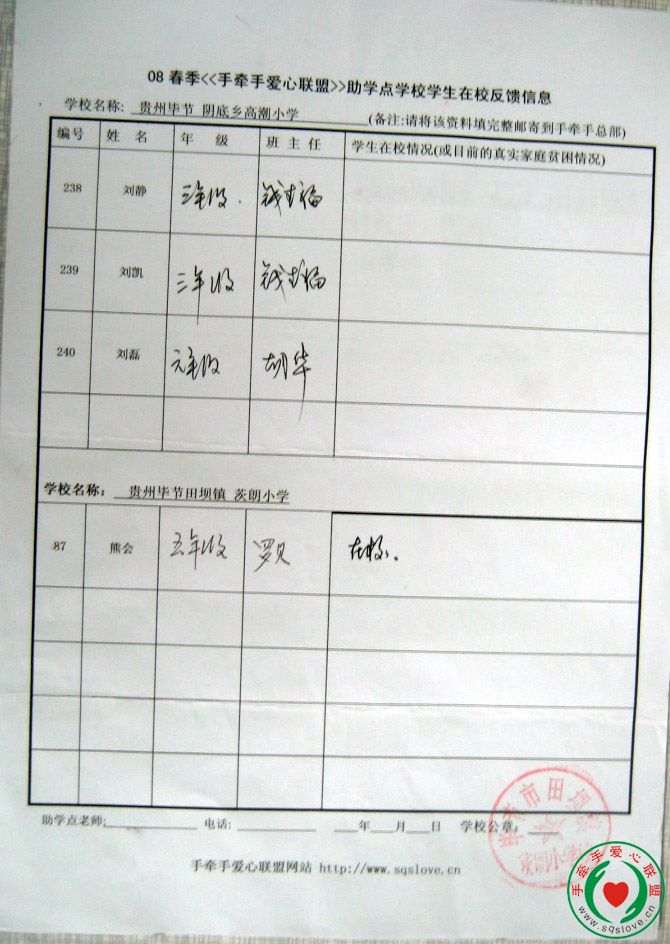 08 春季<<手牵手爱心联盟>>助学点学校学生在校反馈信息
学校名称: 贵州毕节 阴底乡高潮小学 (备注:请将该资料填完整邮寄到手牵手总部)
编号 姓 名 年 级 班 主 任 学生在校情况(或目前的真实家庭贫困情况)
238 刘静 三年级.
239 刘凯 三年级
240 刘磊 年级 胡华
学校名称: 贵州毕节田坝镇 茨朗小学
87 熊会 五年级 罗贝 在校.
助学点老师: 电话: 年 月 日 学校公章:
市田坝
茨朗小学
手牵手爱心联盟网站 http://www.sqslove.cn
手牵手爱心联盟
www.sqslove.cn